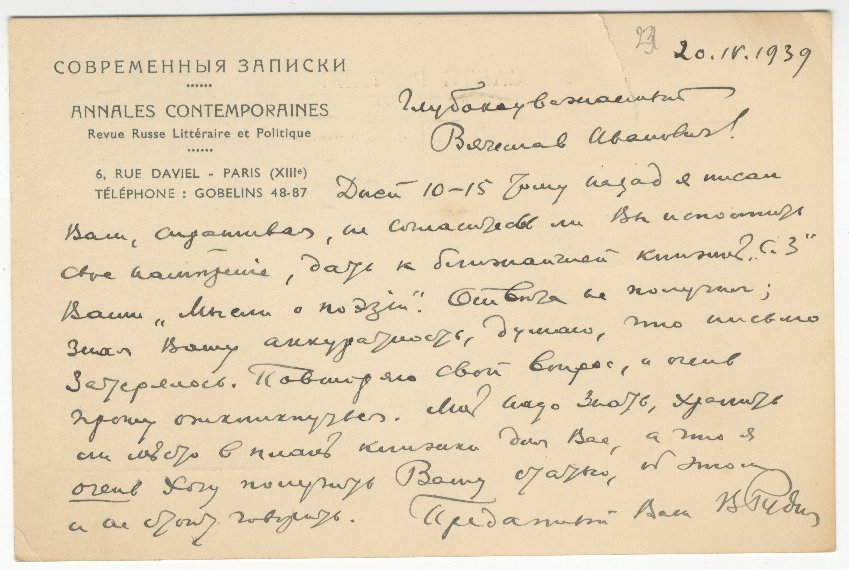 СОВРЕМЕННЫЯ ЗАПИСКИ
ANNALES CONTEMPORAINES
Revue Russe Littéraire et Politique
6, RUE DAVIEL - PARIS (XIIIe)
TÉLÉPHONE : GOBELINS 48-87
20.IV.1939
Глубокоуважаемый
Вячеслав Иванович!
Дней 10-15 тому назад я писал
Вам, спрашивая, не согласитесь ли Вы исполнить
свое намѣренiе, дать к ближайшей книжкѣ „С.З"
Ваши „Мысли о поэзiи". Отвѣта не получил;
зная Вашу аккуратность, думаю, что письмо
затерялось. Повторяю свой вопрос, и очень
прошу откликнуться. Мнѣ надо знать, хранить
ли мѣсто в планѣ книжки для Вас, а что я
очень хочу получить Вашу статью, об этом
и не стоит говорить. Преданный Вам